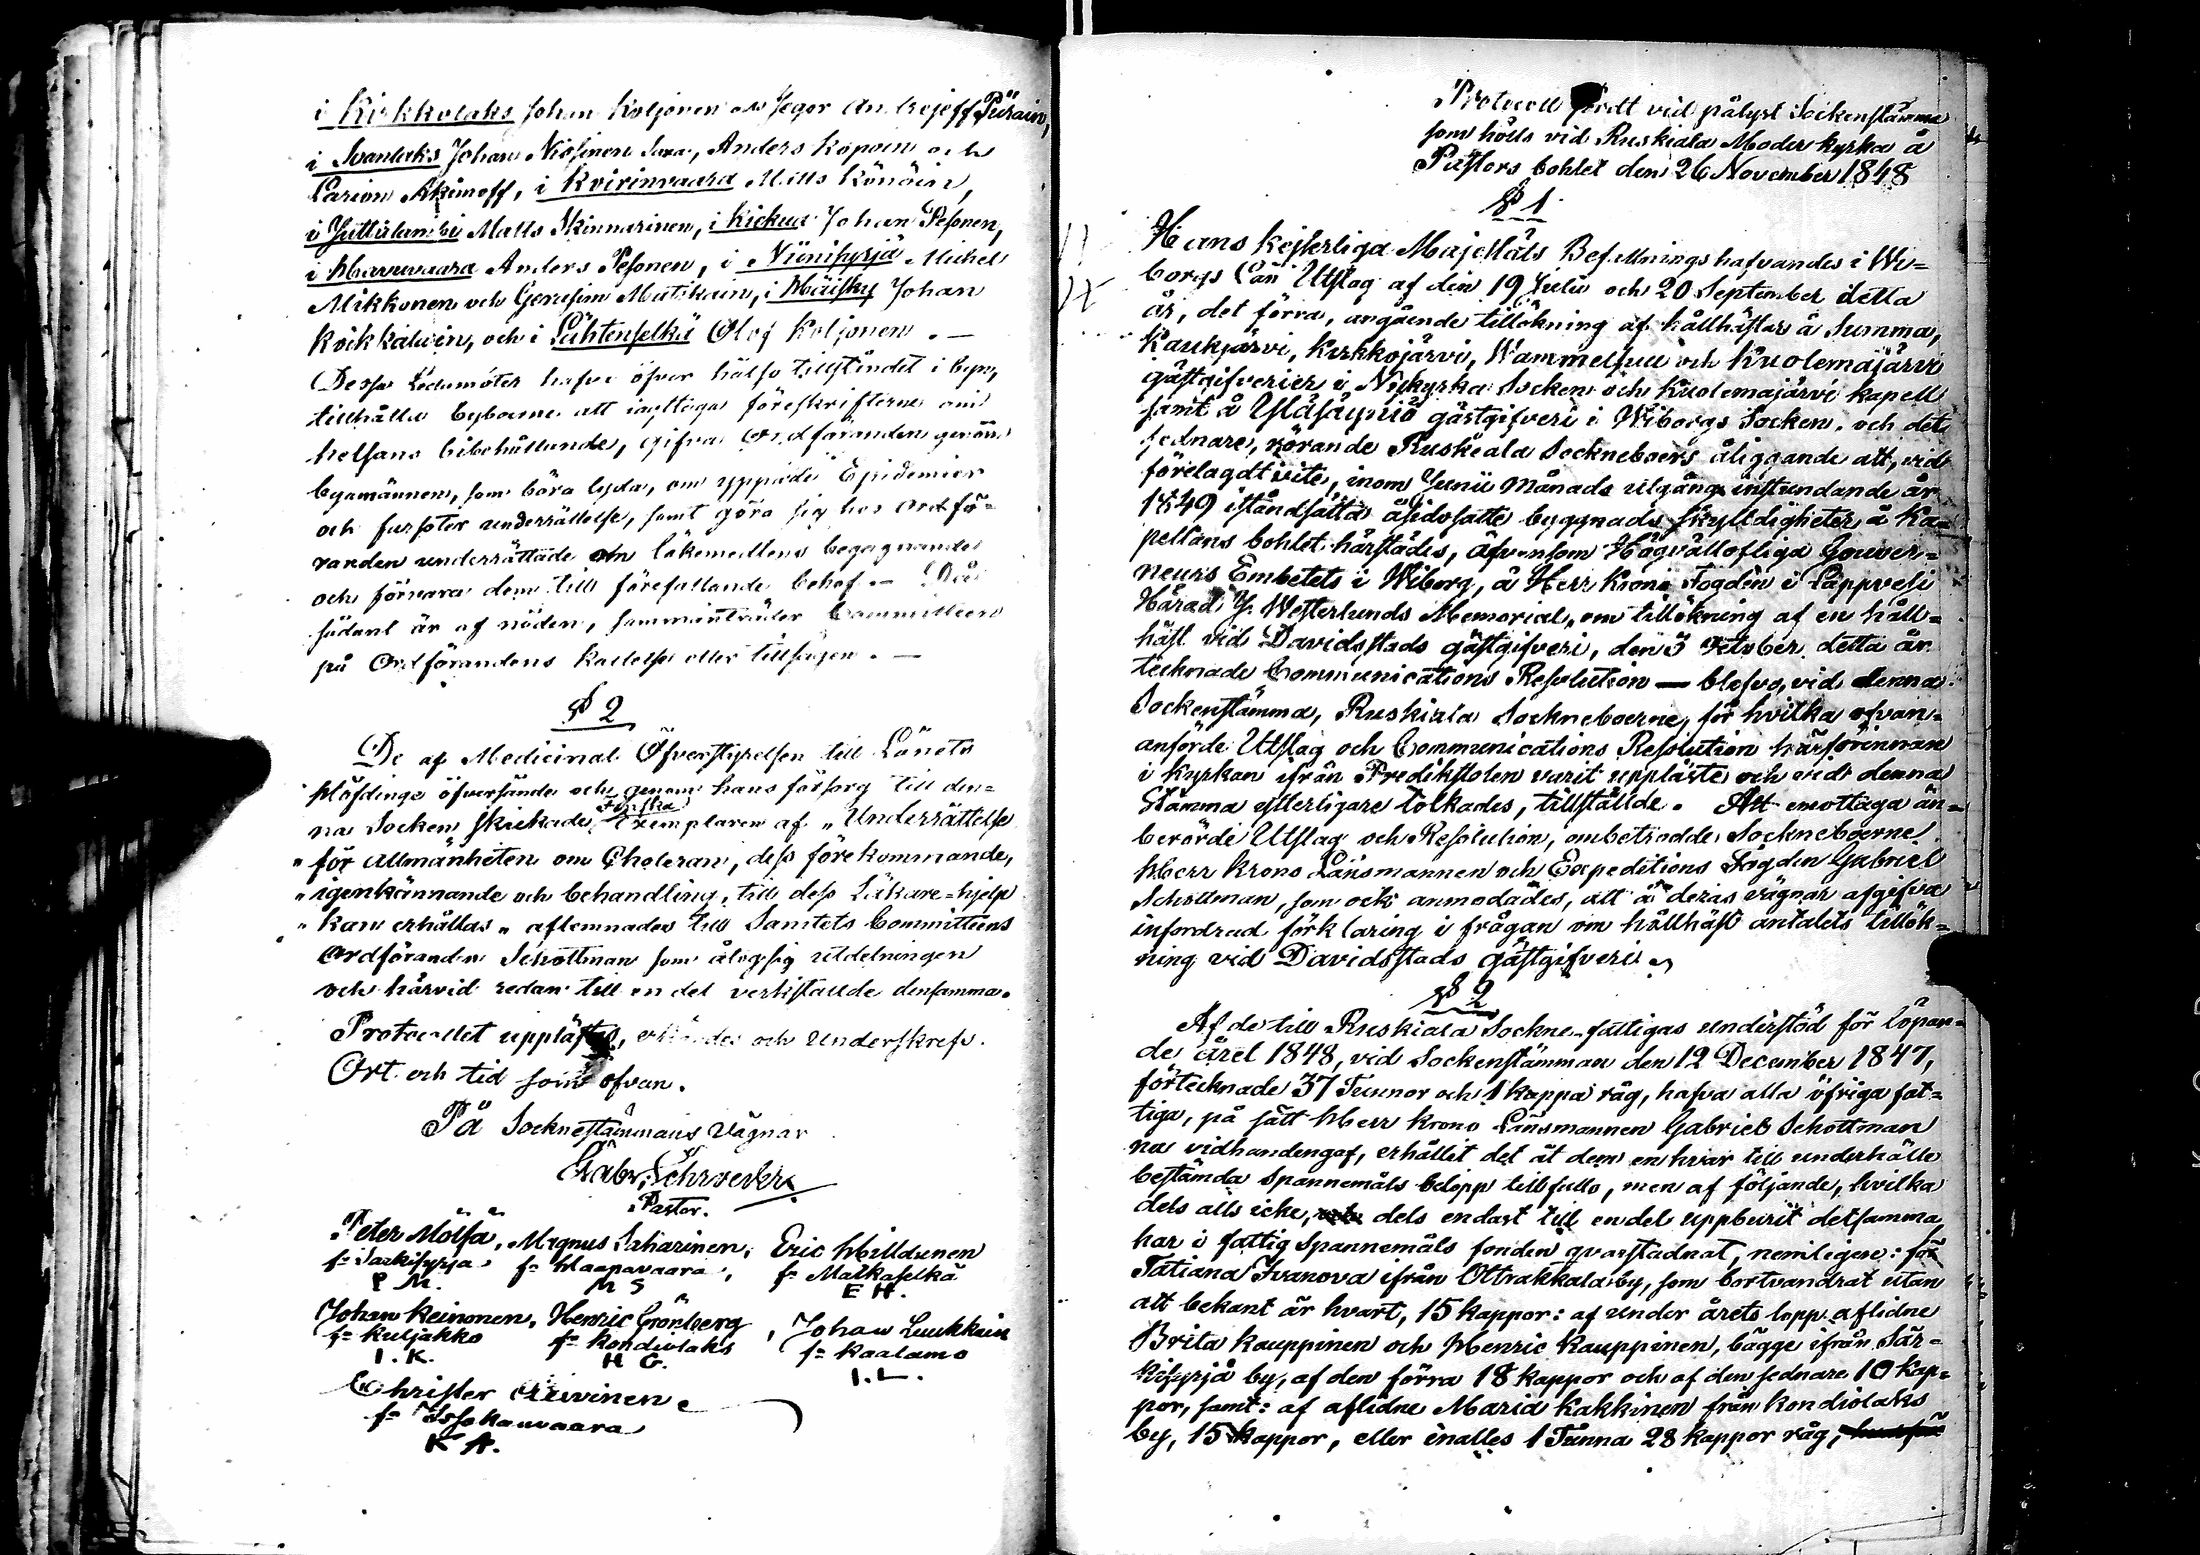 i Kirkkolaks Johan Koljonen och Jegor Andrejeff Piirain,
i Ivanlaks Johan Nissinen Sara, Anders Koponen och
Larion Akimoff, i Kvirinvaara Matts Könönen,
i Juttulambi Matts Skinnarinen, i Kickua Johan Pesonen,
i Havuvaara Anders Pesonen, i Niinisyrjä Michel
Mikkonen och Gerasim Mutikain, i Häisky Johan
Koikkalain, och i Lühtenselkä Olof Koljonen. —
Dessa Ledamöter hafva öfver hälso tillståndet i byn,
tillhålla byboerne att iagttaga föreskrifterne om
helsans bibehållande, gifva Ordföranden genom
byamännen, som böra lyda, om yppade Epidemier
och farsoter underrättelse, samt göra sig hos Ordfö-
randen underrättade om läkemedlens begagnande
och förvara dem till förefallande behof. — När
sådant är af nöden, sammanträder Committeen
på Ordförandens kallelse eller tillsägen. —
§ 2
De af Medicinal Öfverstyrelsen till Länets
Höfdinge öfversände och genom hans försorg till den-
na Socken skickade Finska Exemplaren af „Underrättelse
„för Allmänheten om Choleran, dess förekommande,
„igenkännande och behandling, till dess Läkare-hjelp
„kan erhållas„ aflemnades till Sanitets Committeens
Ordföranden Schottman som ålog sig utdelningen
och härvid redan till en del verkställde densamma.
Protocollet upplästes, erkändes och underskrefs.
Ort och tid som ofvan.
På Socknestämmans Vägnar
Gabr. Schroeder
Pastor.
Peter Mölsä, Magnus Saharinen, Eric Hilldunen
fr Särkisyrja fr Haapavaara, fr Matkaselkä
P M. M S E H.
Johan Keinonen, Henric Grönberg, Johan Luukkain
fr Kuljakko fr Kondiolaks fr Kaalamo
I. K. H G. I. L.
Christer Arvinen
fr Issakanvaara
K A.
Protocoll fördt vid pålyst Sockenstämma
som hölls vid Ruskiala Moder kyrka å
Pastors bohlet den 26 November 1848
§ 1
Hans Kejserliga Majestäts Befallningshafvandes i Wi-
borgs Län Utslag af den 19 Julii och 20 September detta
år, det förra, angående tillökning af hållhästar å Summa,
Kaukjärvi, Kirkkojärvi, Wammelsuu och Kuolemajärvi
gästgifverier i Nykyrka Socken och Kuolemajärvi kapell
samt å Yläsäyniö gästgifveri i Wiborgs Socken, och det
sednare, rörande Ruskeala Sockneboers åliggande att, vid
förelagdt vite, inom Junii Månads utgång instundande år
1849 iståndsätta åsidosatte byggnads skylldigheter å Ka-
pellans bohlet härstädes, äfvensom Högvällofliga Gouver-
neurs Embetets i Wiborg, å Herr Krono Fogden i Lappvesi
Härad Y. Westerlunds Memorial, om tillökning af en håll-
häst vid Davidsstads gästgifveri, den 3 October detta år
tecknade Communications Resolution — blefvo, vid denna
Sockenstämma, Ruskiala Sockneboerne, för hvilka ofvan-
anförde Utslag och Communications Resolution härförinnan
i Kyrkan ifrån Predikstolen varit uppläste och vid denna
Stämma ytterligare tolkades, tillställde. Att emottaga än-
berörde Utslag och Resolution, ombetrodde Sockneboerne
Herr Krono Länsmannen och Expeditions Fogden Gabriel
Schottman, som ock anmodades, att å deras vägnar afgifva
infordrad förklaring i frågan om hållhäst antalets tillök-
ning vid Davidsstads gästgifveri.
§ 2
Af de till Ruskiala Sockne-fattigas understöd för löpan-
de året 1848, vid Sockenstämman den 12 December 1847,
förtecknade 37 Tunnor och 1 kappa råg, hafva alla öfriga fat-
tiga, på sätt Herr Krono Länsmannen Gabriel Schottman
nu vidhandengaf, erhållit det åt dem en hvar till underhålle
bestämda Spannemåls belopp tillfullo, men af följande, hvilka
dels alls icke, dels endast till en del uppburit detsamma,
har i fattig Spannemåls fonden qvarstadnat, nemligen: för
Tatiana Ivanova ifrån Ottrakkala by, som bortvandrat utan
att bekant är hvart, 15 kappor: af under årets lopp aflidne
Brita Kauppinen och Henric Kauppinen, bägge ifrån Sär-
kisyrjä by, af den förra 18 kappor och af den sednare 10 kap-
por, samt: af aflidne Maria Kakkinen från Kondiolaks
by, 15 kappor, eller inalles 1 Tunna 28 kappor råg,